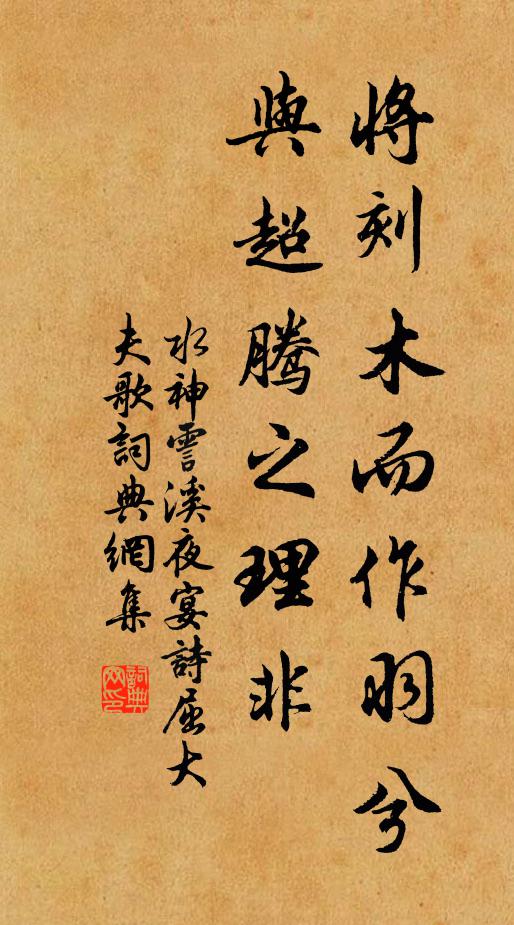 將刻木而作羽兮
與超騰之理非
水神霅溪夜宴詩屈大
夫歌詞典網集
詞典网印